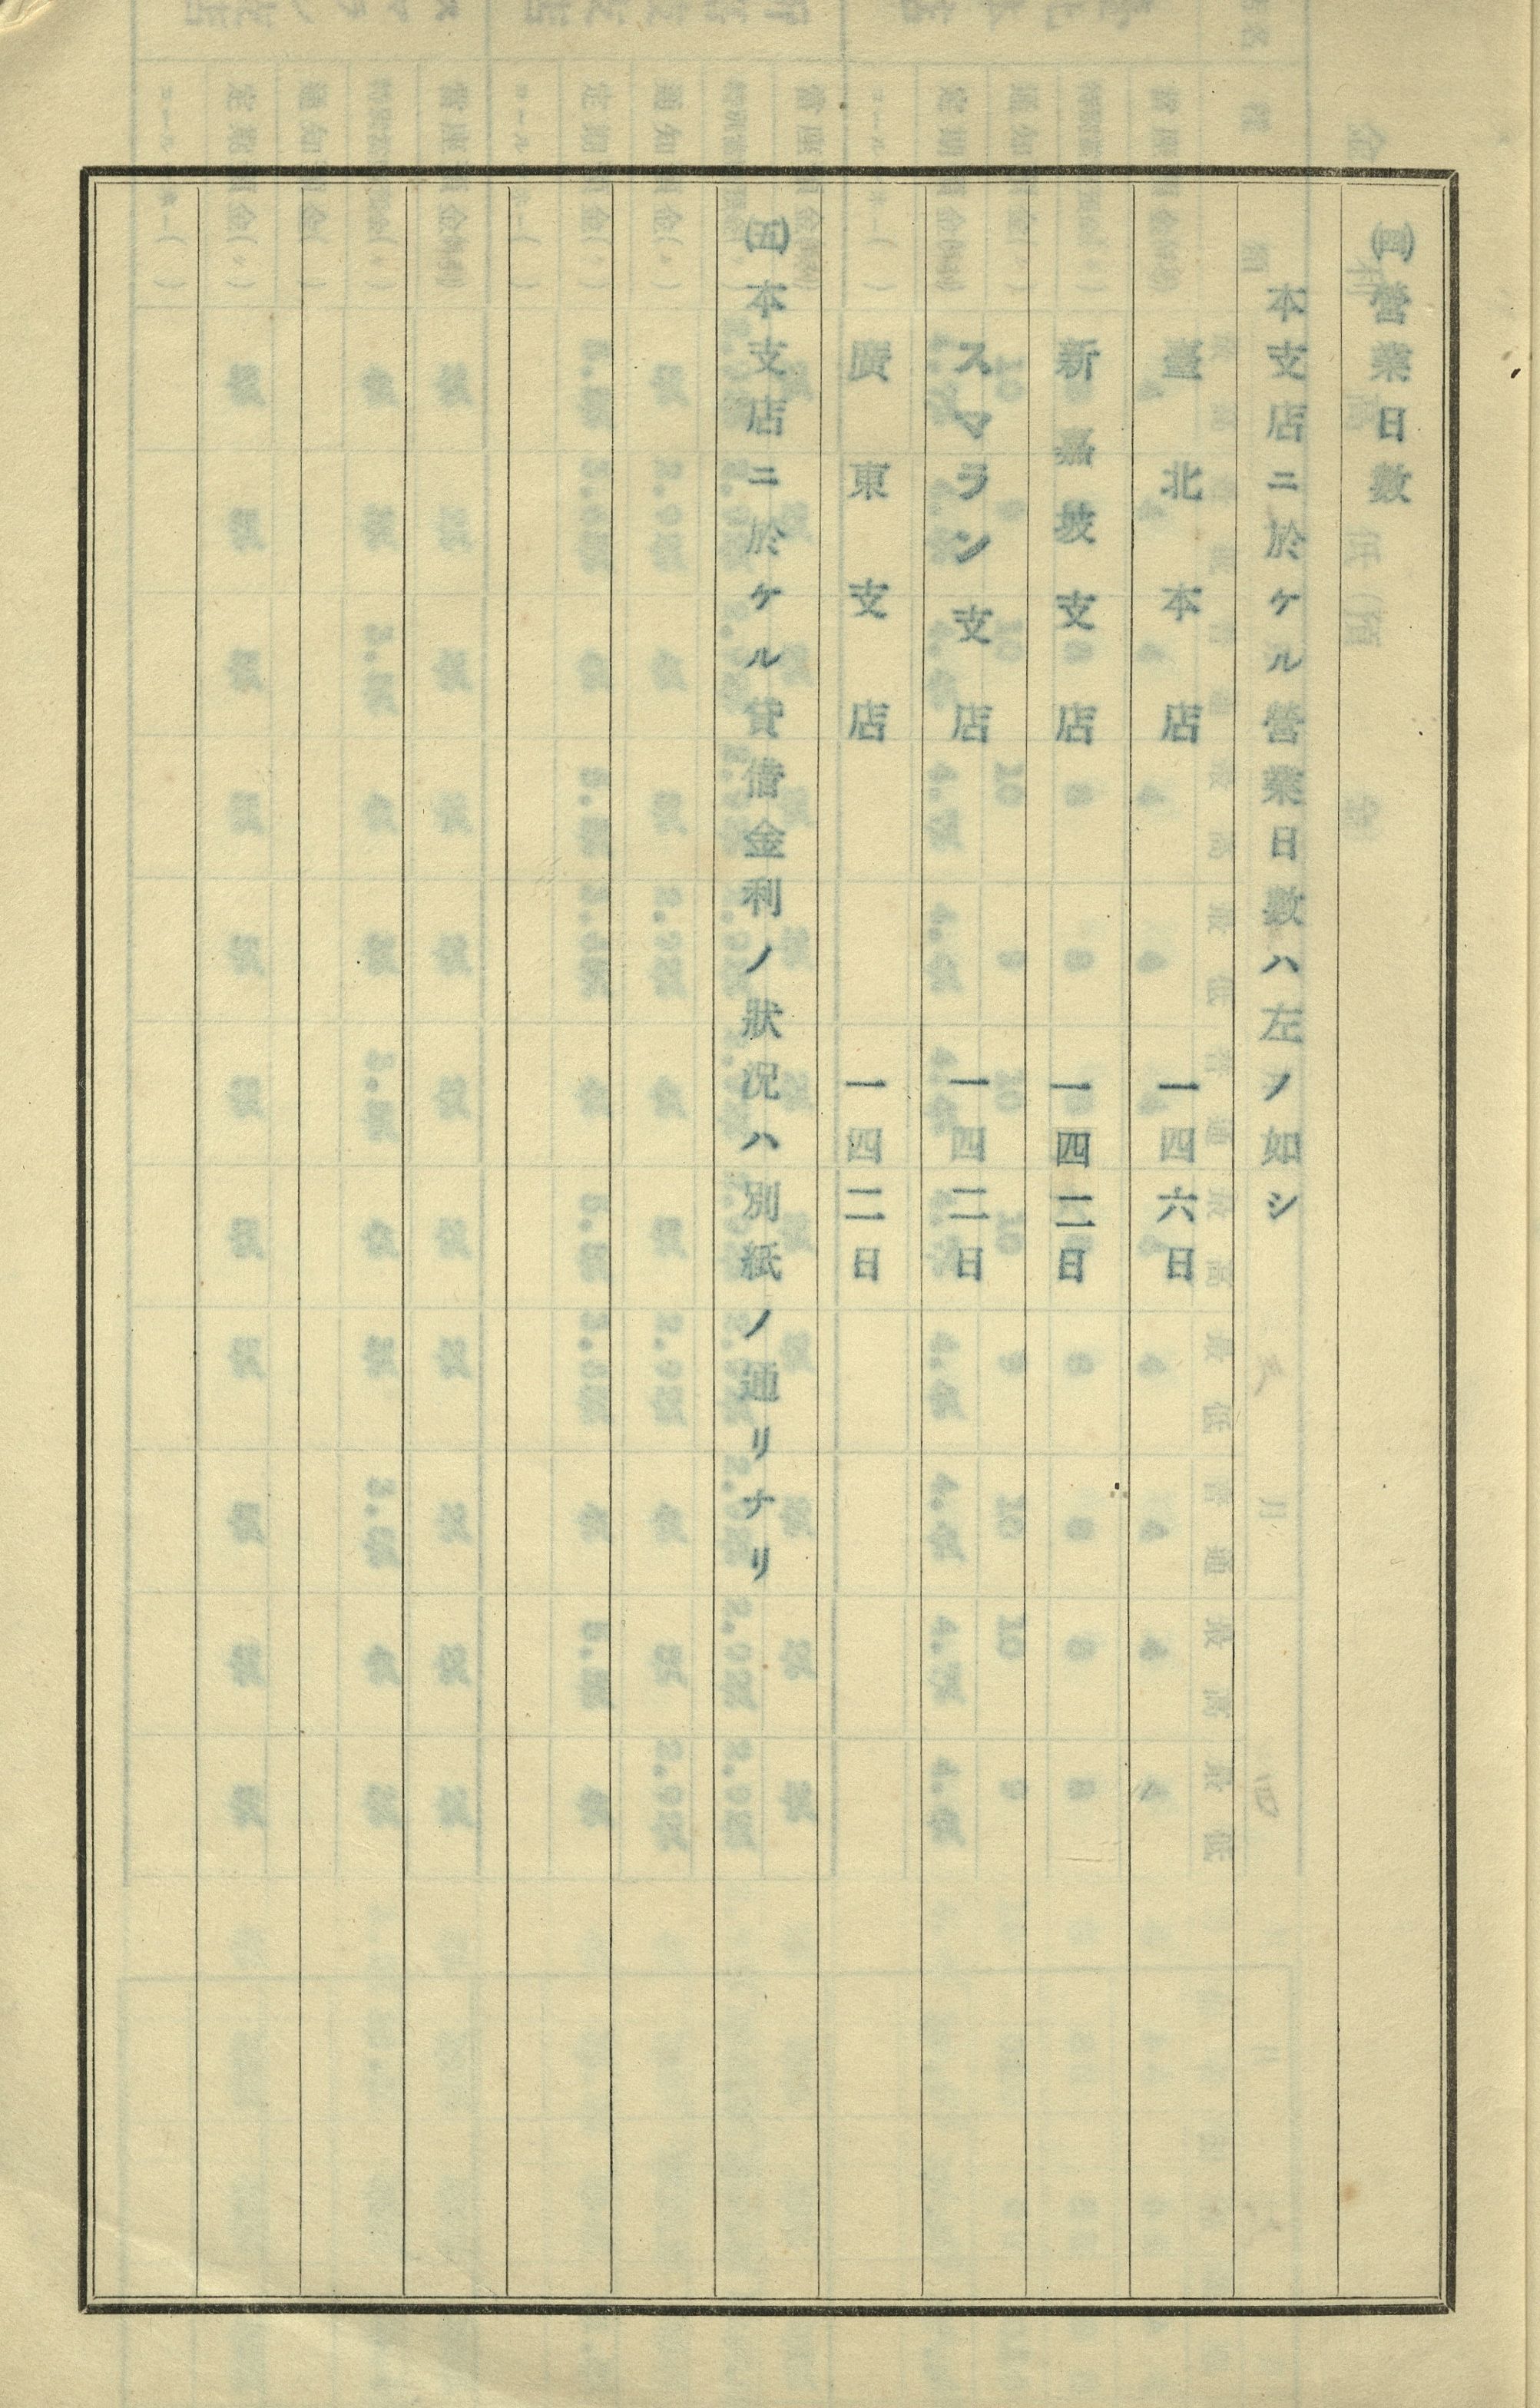 ㈣營業日數
本支店ニ於ケル營業日數ハ左ノ如シ
臺北本店 一四六日
新嘉坡支店 一四二日
スマラン支店 一四二日
廣東支店 一四二日
㈤本支店ニ於ケル貸借金利ノ狀況ハ別紙ノ通リナリ